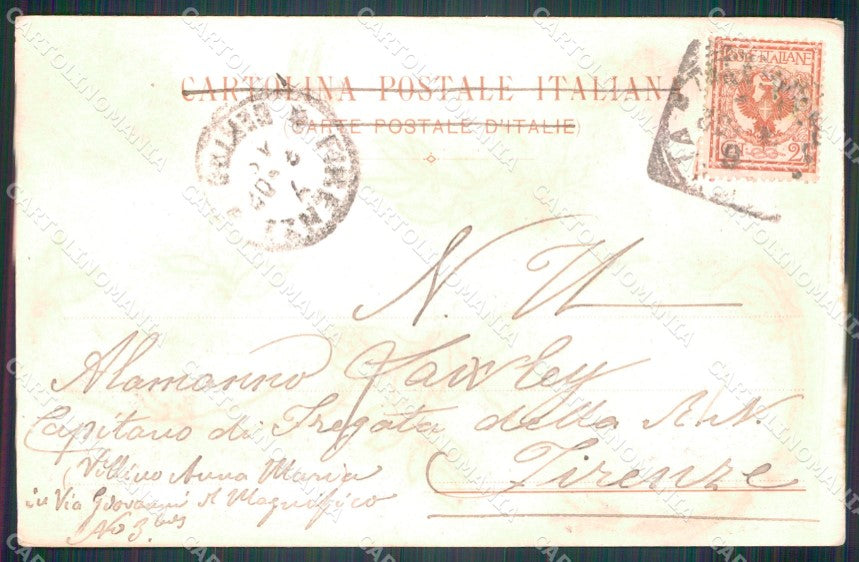 CARTOLINA POSTALE ITALIANA
(CARTE POSTALE D'ITALIE)
POSTE ITALIANE
CENT. 2
FIRENZE
N. U.
Alamanno
Capitano di Fregata della R. N.
Firenze
Villino Anna Maria
in Via Giovanni il Magnifico
No 3 bis
CARTOLINOMANIA